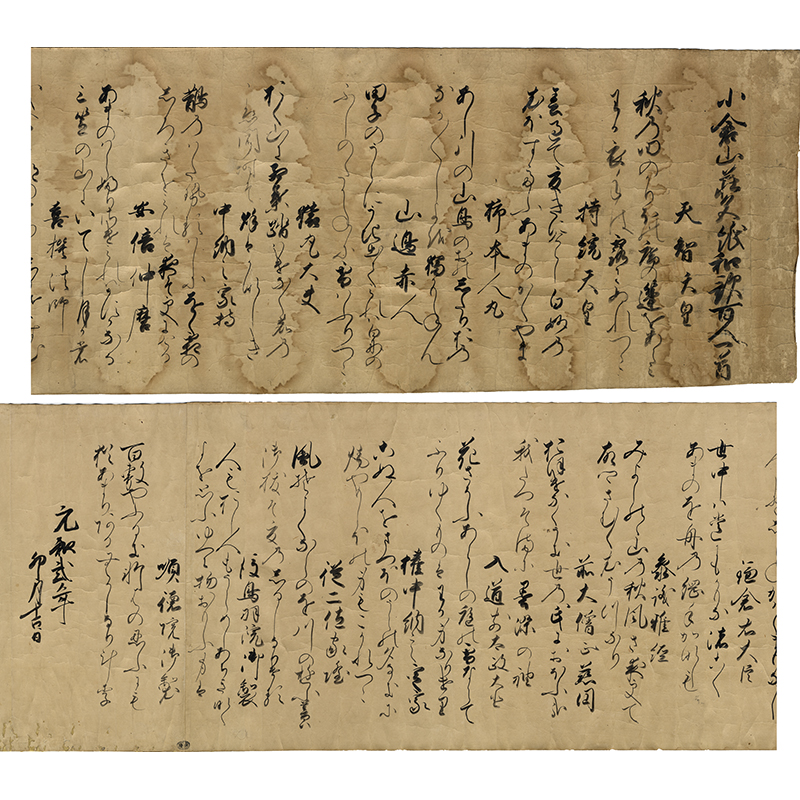 小倉山荘色紙和歌百人一首
天智天皇
秋乃田のかりほの庵の苫をあらみ
わか衣手は露にぬれつゝ
持統天皇
春過て夏きにけらし白妙の
ころもほすてふあまのかく山
柿本人丸
あし引の山鳥のおのしたりおの
なか〳〵し夜を独かもねん
山邊赤人
田子のうらに打出てみれは白妙の
ふしのたかねに雪はふりつゝ
猿丸大夫
おく山に紅葉踏分鳴鹿の
聲聞時そ秋はかなしき
中納言家持
鵲のわたせる橋にをく霜の
しろきをみれは夜そ更にける
安倍仲麿
あまの原ふりさけみれはかすかなる
三笠の山にいてし月かも
喜撰法師
鎌倉右大臣
世中は常にもかもな渚こく
あまのを舟の綱手かなしも
参議雅経
みよし野の山乃秋風さ夜更て
故郷さむく衣うつなり
前大僧正慈円
おほけなくうき世の民におほふ哉
我たつそまに墨染の袖
入道前太政大臣
花さそふあらしの庭の雪ならて
ふりゆくものは我身なりけり
権中納言定家
こぬ人をまつほのうらの夕なきに
焼やもしほの身もこかれつゝ
従二位家隆
風そよくならの小川の夕暮は
御祓そ夏のしるしなりける
後鳥羽院御製
人もおし人もうらめしあちきなく
よを思ふゆへに物おもふ身は
順徳院御製
百敷やふるき軒端の忍ふにも
猶あまりある昔なりけり
元和弐年
卯月吉日